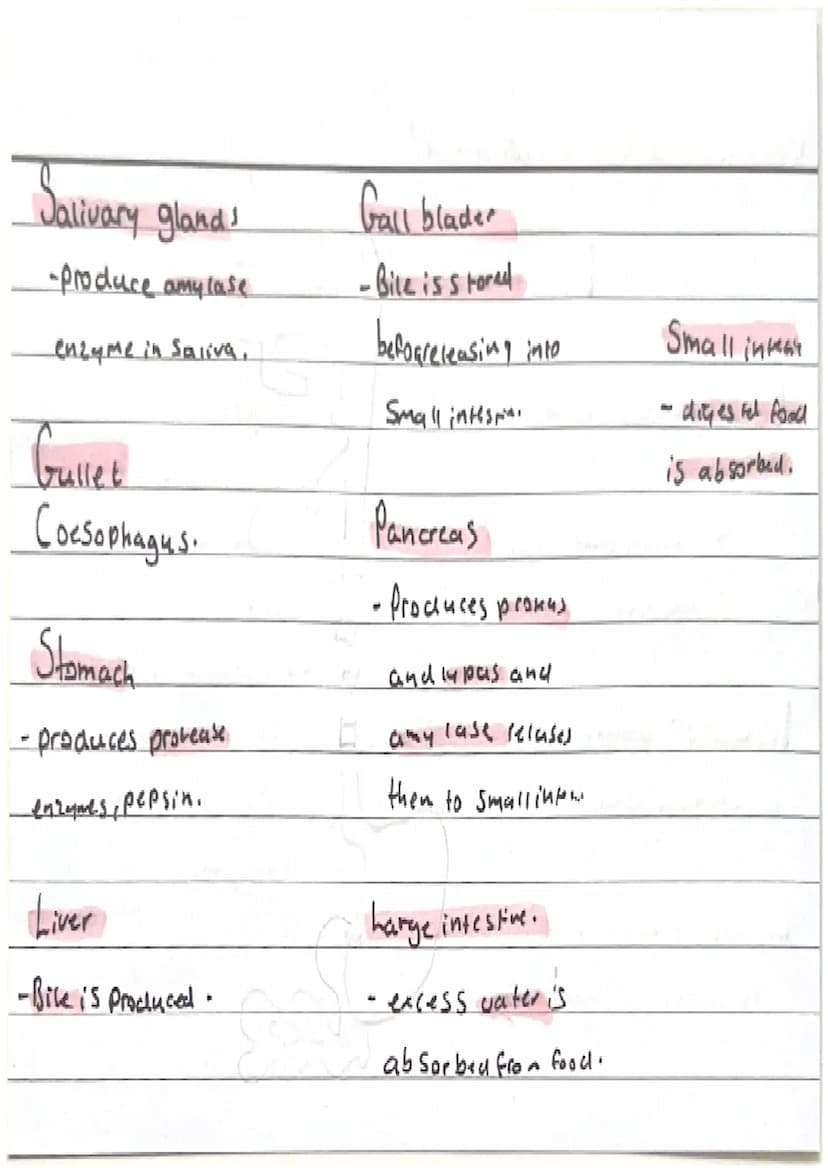 Salivary glands
-produce amylase
enzyme in Saliva.
Gullet
Coesophagus.
Stomach
- produces protease
enzymes, pepsin.
Liver
-Bile is Produced.
Gall blader
- Bile is stored
before releasing into
Small
Pancreas
- Produces
and and
amylase
them to small
Large intestine.
- excess water is
absorbed from food.
Small
- digested food
is absorbed.